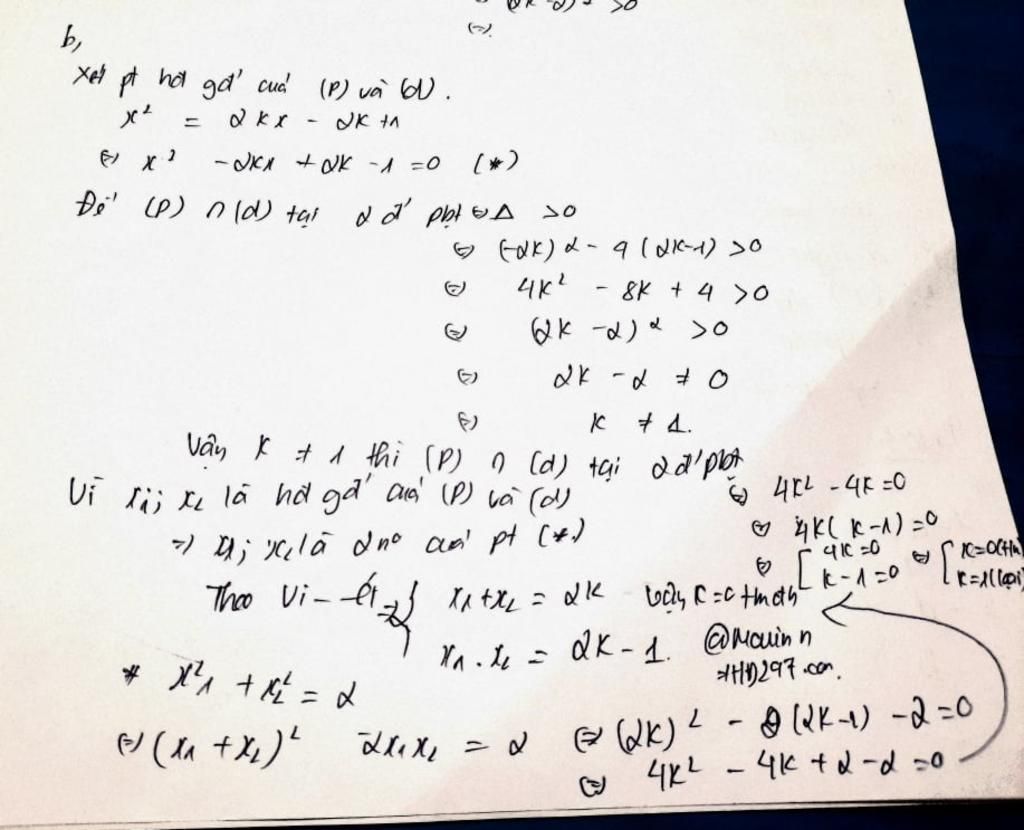 (2k-2)² >0
(=).
b,
Xét pt hđ gđ' của (P) và (d).
x² = 2kx - 2k+1
(=) x² -2kx +2k -1 =0 (*)
Để (P) ∩ (d) tại 2 đ' pbt (=) Δ >0
(=) (-2k)2 - 4 (2k-1) >0
(=) 4k² - 8k + 4 >0
(=) (2k -2)² >0
(=) 2k - 2 ≠ 0
(=) k ≠ 1.
Vậy k ≠ 1 thì (P) ∩ (d) tại 2 đ' pbt
Vì x₁; x₂ là hđ gđ' của (P) và (d)
=) x₁; x₂ là 2 no của pt (*)
Theo Vi-ét =) { x₁+x₂ = 2k
x₁.x₂ = 2k-1.
* x²₁ + x²₂ = 2
(=) (x₁+x₂)² - 2x₁x₂ = 2
(=) (2k)² - 2(2k-1) -2=0
(=) 4k² - 4k + 2 - 2 =0
(=) 4k² - 4k =0
(=) 4k( k-1) =0
(=) [ 4k =0 (=) [ k=0(tm
k-1 =0 k=1(loại)
Vậy k=0 tmđth